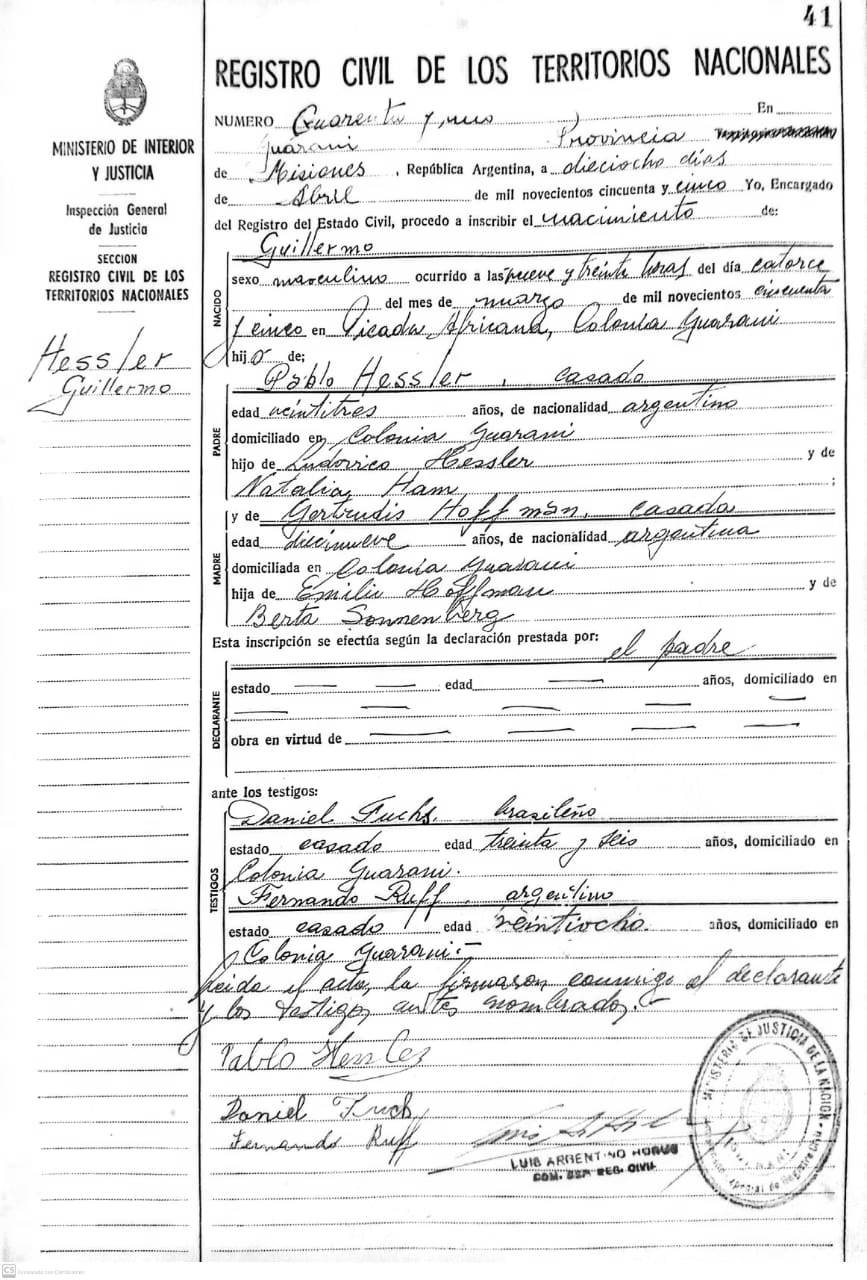 41
REGISTRO CIVIL DE LOS TERRITORIOS NACIONALES
MINISTERIO DE INTERIOR
Y JUSTICIA
Inspección General
de Justicia
SECCION
REGISTRO CIVIL DE LOS
TERRITORIOS NACIONALES
Hessler
Guillermo
NUMERO Cuarenta y uno En
Guaraní Provincia
de Misiones, República Argentina, a dieciocho días
de Abril de mil novecientos cincuenta y cinco Yo, Encargado
del Registro del Estado Civil, procedo a inscribir el nacimiento de:
NACIDO
Guillermo
sexo masculino ocurrido a las nueve y treinta horas del día catorce
del mes de marzo de mil novecientos cincuenta
y cinco en Picada Africana, Colonia Guaraní
hijo de;
PADRE
Pablo Hessler, casado
edad veintitres años, de nacionalidad argentino
domiciliado en Colonia Guaraní
hijo de Ludovico Hessler y de
Natalia Ham ;
MADRE
y de Gertrudis Hoffman, casada
edad diecinueve años, de nacionalidad argentina
domiciliada en Colonia Guaraní
hija de Emilio Hoffman y de
Berta Sonnenberg
Esta inscripción se efectúa según la declaración prestada por: el padre
DECLARANTE
estado — — edad — años, domiciliado en —
— — — —
obra en virtud de — — — —
ante los testigos:
TESTIGOS
Daniel Fuchs, brasileño
estado casado edad treinta y seis años, domiciliado en
Colonia Guaraní.
Fernando Ruff, argentino
estado casado edad veintiocho. años, domiciliado en
Colonia Guaraní.-
Leida el acta, la firmaron conmigo el declarante
y los testigos antes nombrados.-
Pablo Hessler
Daniel Fuchs
Fernando Ruff
LUIS ARGENTINO
COM. REG. CIVIL
MINISTERIO DE JUSTICIA DE LA NACION
CS